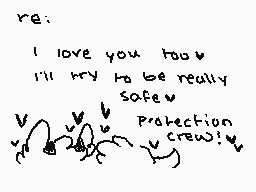 re:
i love you too ♥
i'll try to be really
safe ♥
protection
crew! ♥